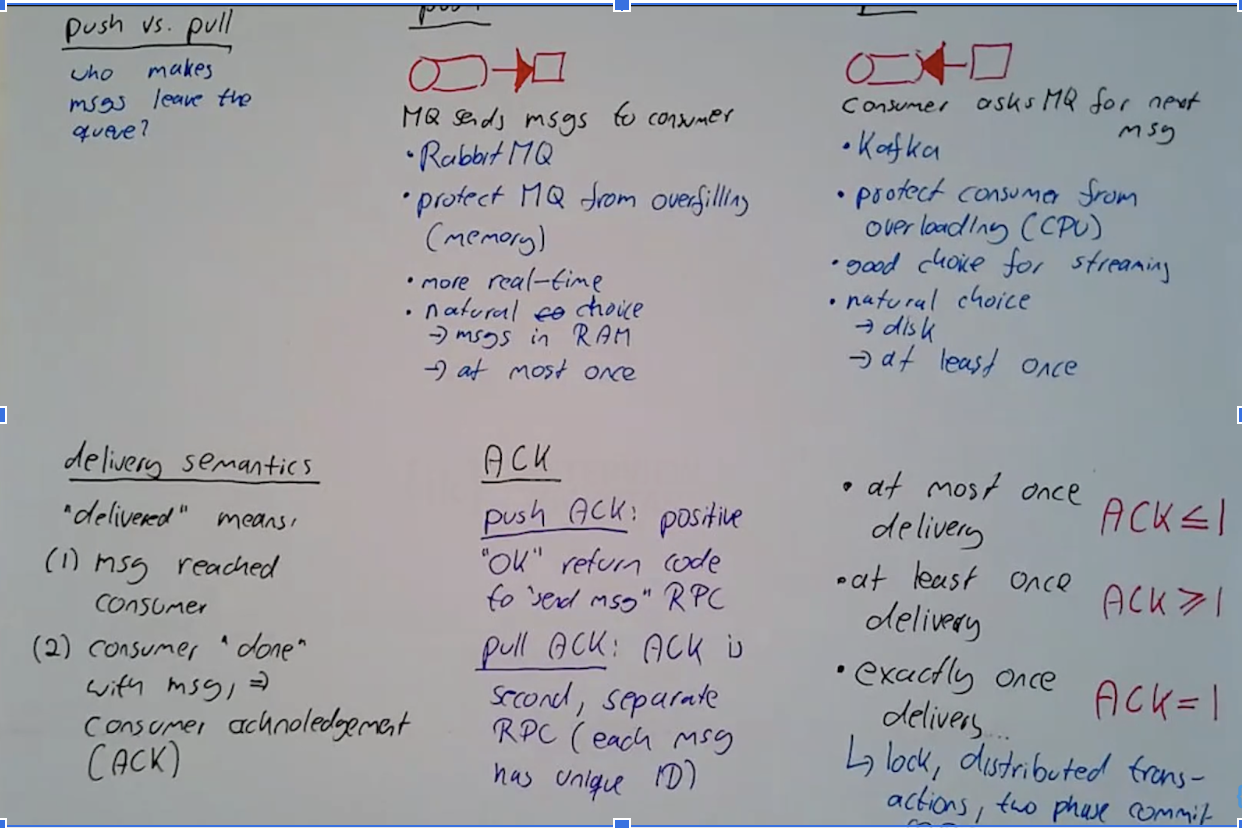 push vs. pull
who makes
msgs leave the
queue?
push
MQ sends msgs to consumer
• Rabbit MQ
• protect MQ from overfilling
(memory)
• more real-time
• natural choice
→ msgs in RAM
→ at most once
Consumer asks MQ for next
msg
• Kafka
• protect consumer from
overloading (CPU)
• good choice for streaming
• natural choice
→ disk
→ at least once
delivery semantics
"delivered" means:
(1) msg reached
consumer
(2) consumer "done"
with msg, ⇒
consumer acknoledgement
(ACK)
ACK
push ACK: positive
"OK" return code
to "send msg" RPC
pull ACK: ACK is
second, separate
RPC (each msg
has unique ID)
• at most once
delivery ACK ≤ 1
• at least once
delivery ACK ≥ 1
• exactly once
delivery... ACK = 1
↳ lock, distributed trans-
actions, two phase commit